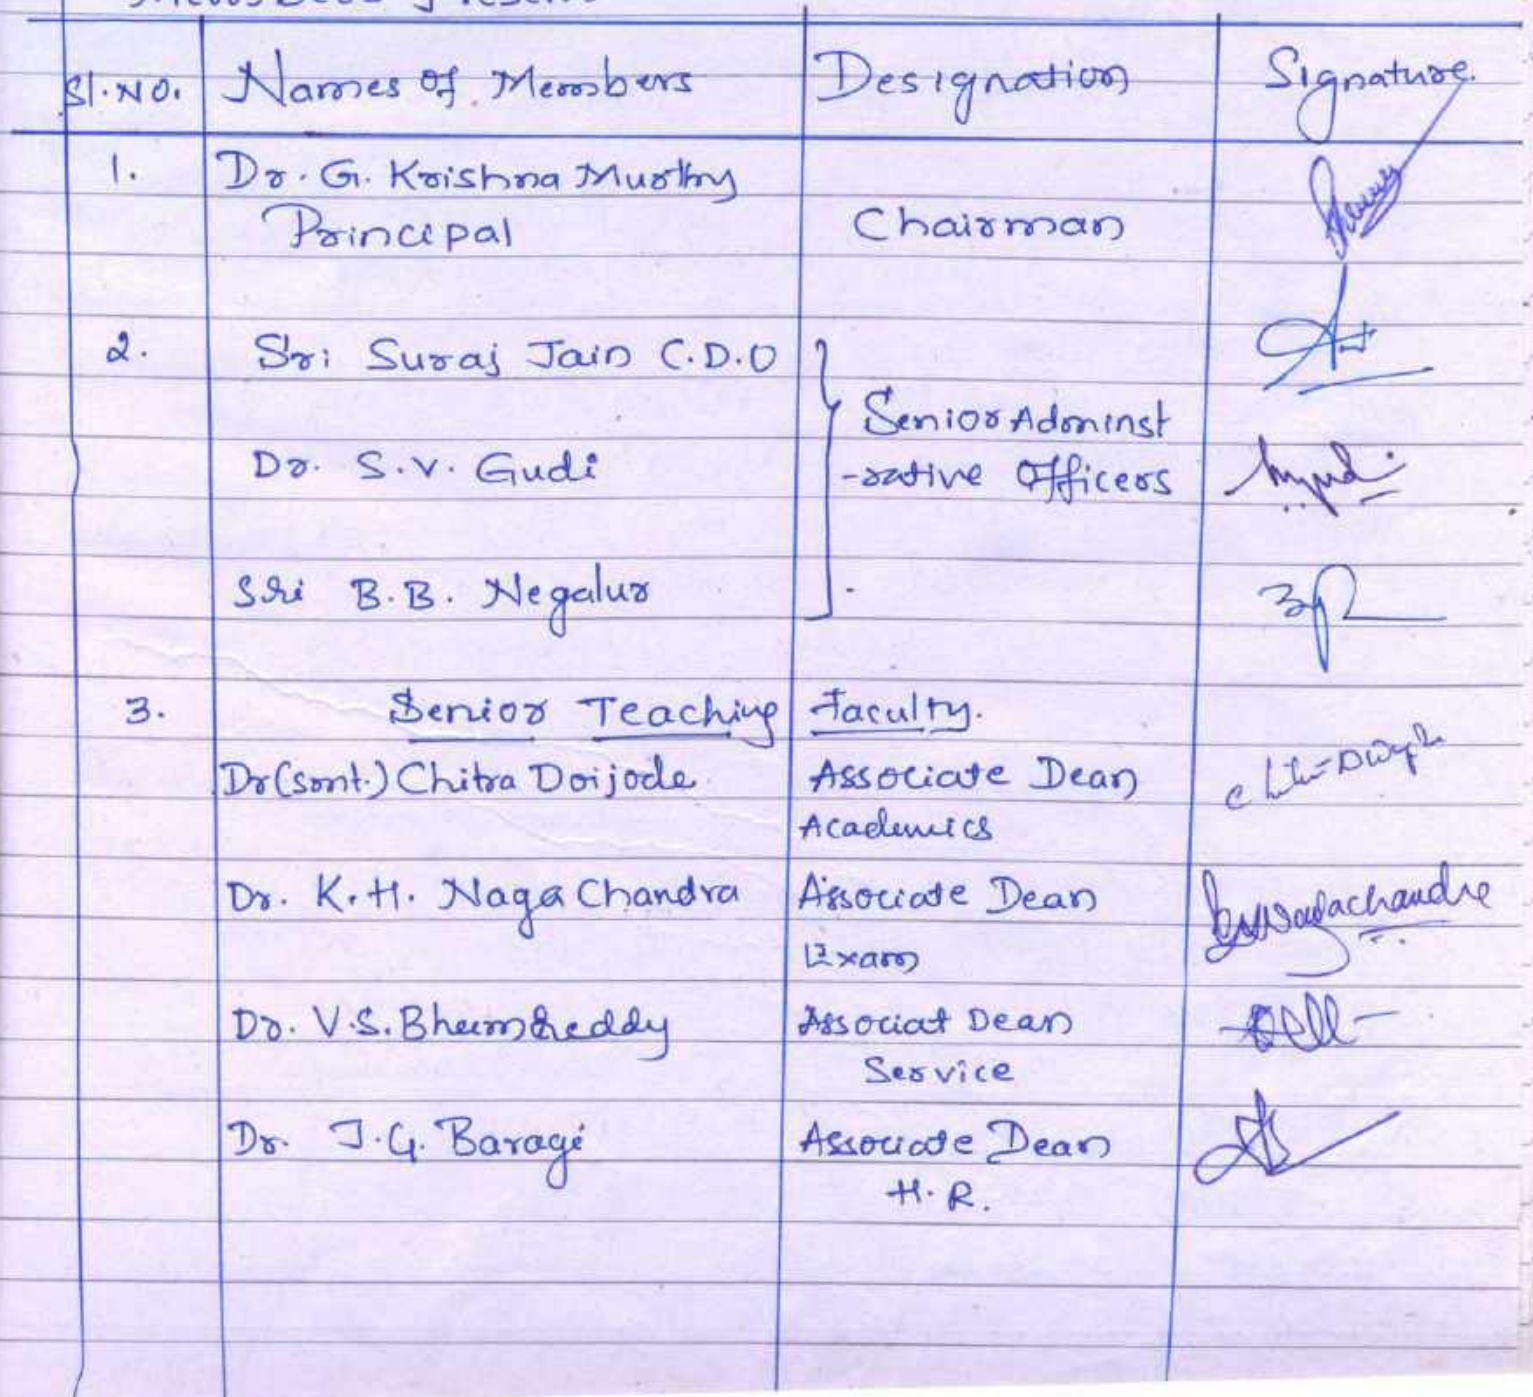 Members Present
Sl.No. Names of Members Designation Signature
1. Dr. G. Krishna Murthy
Principal Chairman
2. Sri Suraj Jain C.D.O
Senior Adminst
Dr. S.V. Gudi -rative Officers
Sri B.B. Negalur
3. Senior Teaching Faculty.
Dr (smt.) Chitra Doijode Associate Dean
Academics
Dr. K.H. Naga Chandra Associate Dean
Exam
Dr. V.S. Bheemreddy Associat Dean
Service
Dr. J.G. Baragi Associate Dean
H.R.